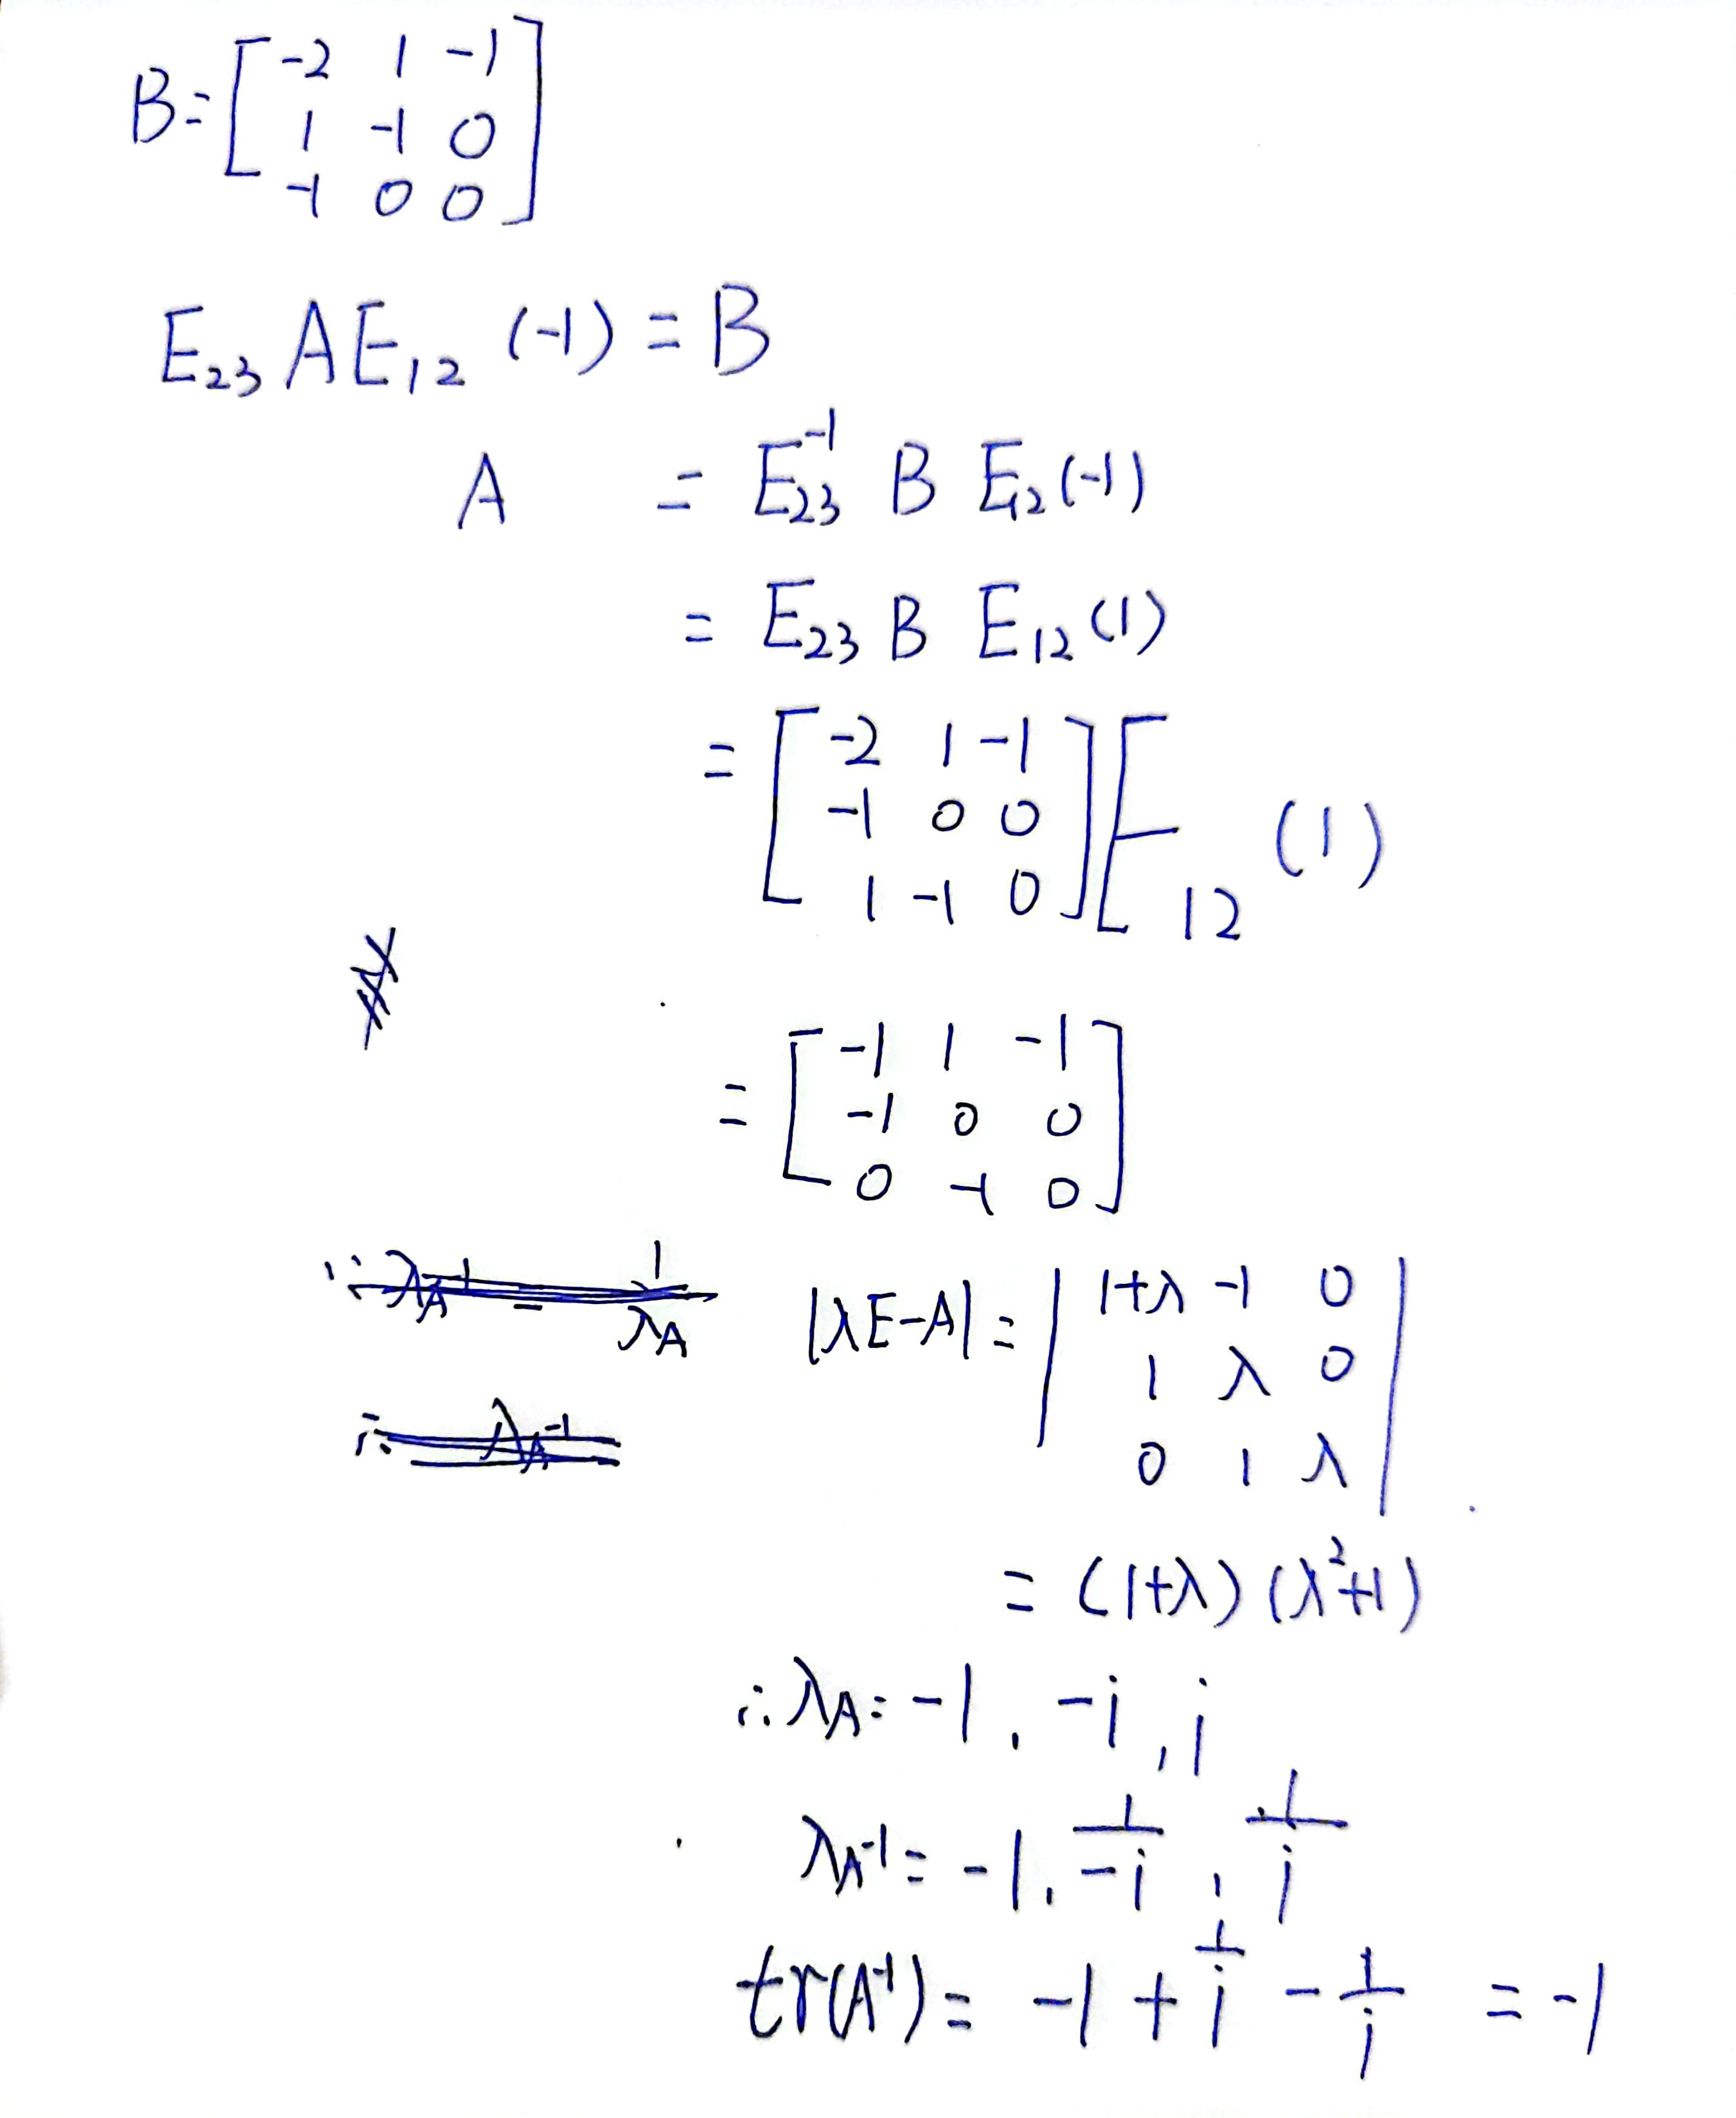 B = [ -2 1 -1
1 -1 0
-1 0 0 ]
E₂₃ A E₁₂ (-1) = B
A = E₂₃⁻¹ B E₁₂(-1)
= E₂₃ B E₁₂(1)
= [ -2 1 -1
-1 0 0
1 -1 0 ] E₁₂ (1)
= [ -1 1 -1
-1 0 0
0 -1 0 ]
∵ λ_A⁻¹ = 1/λ_A
|λE-A| = | 1+λ -1 0
1 λ 0
0 1 λ |
∴ λ_A⁻¹
= (1+λ)(λ²+1)
∴ λ_A = -1, -i, i
λ_A⁻¹ = -1, 1/-i, 1/i
tr(A⁻¹) = -1 + 1/i - 1/i = -1